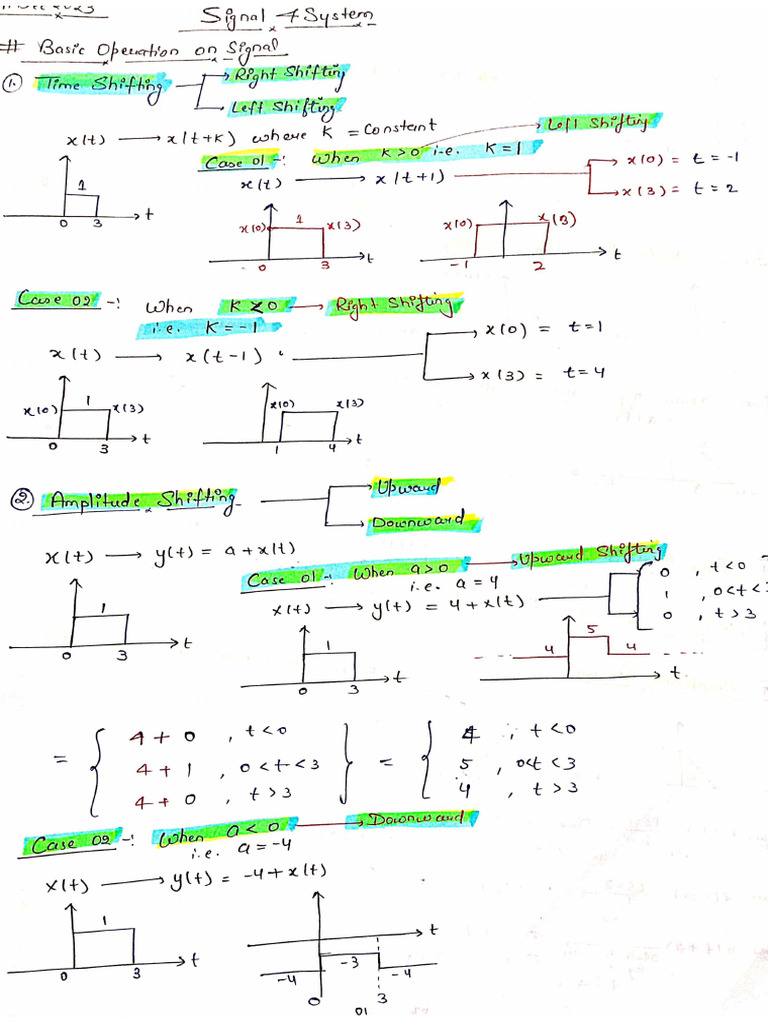 Signal & System
# Basic Operation on Signal
1. Time Shifting
Right Shifting
Left Shifting
x(t) → x(t+k) where k = Constant
Left Shifting
Case 01 -: When K>0 i.e. K=1
x(t) → x(t+1)
x(0) = t = -1
x(3) = t = 2
1
0 3 t
x(0) 1 x(3)
0 3 t
x(0) x(3)
-1 2 t
Case 02 -: When K<0 → Right Shifting
i.e. K=-1
x(t) → x(t-1)
x(0) = t=1
x(3) = t=4
x(0) 1 x(3)
0 3 t
x(0) x(3)
1 4 t
2. Amplitude Shifting
Upward
Downward
x(t) → y(t) = a+x(t)
Case 01 -: When a>0 → Upward Shifting
i.e. a=4
x(t) → y(t) = 4+x(t)
0 , t<0
1 , 0<t<3
0 , t>3
1
0 3 t
1
0 3 t
4 5 4
t
= { 4+0 , t<0
4+1 , 0<t<3
4+0 , t>3 }
= { 4 , t<0
5 , 0<t<3
4 , t>3
Case 02 -: When a<0 → Downward
i.e. a=-4
x(t) → y(t) = -4+x(t)
1
0 3 t
t
-4 -3 -4
0 3
01